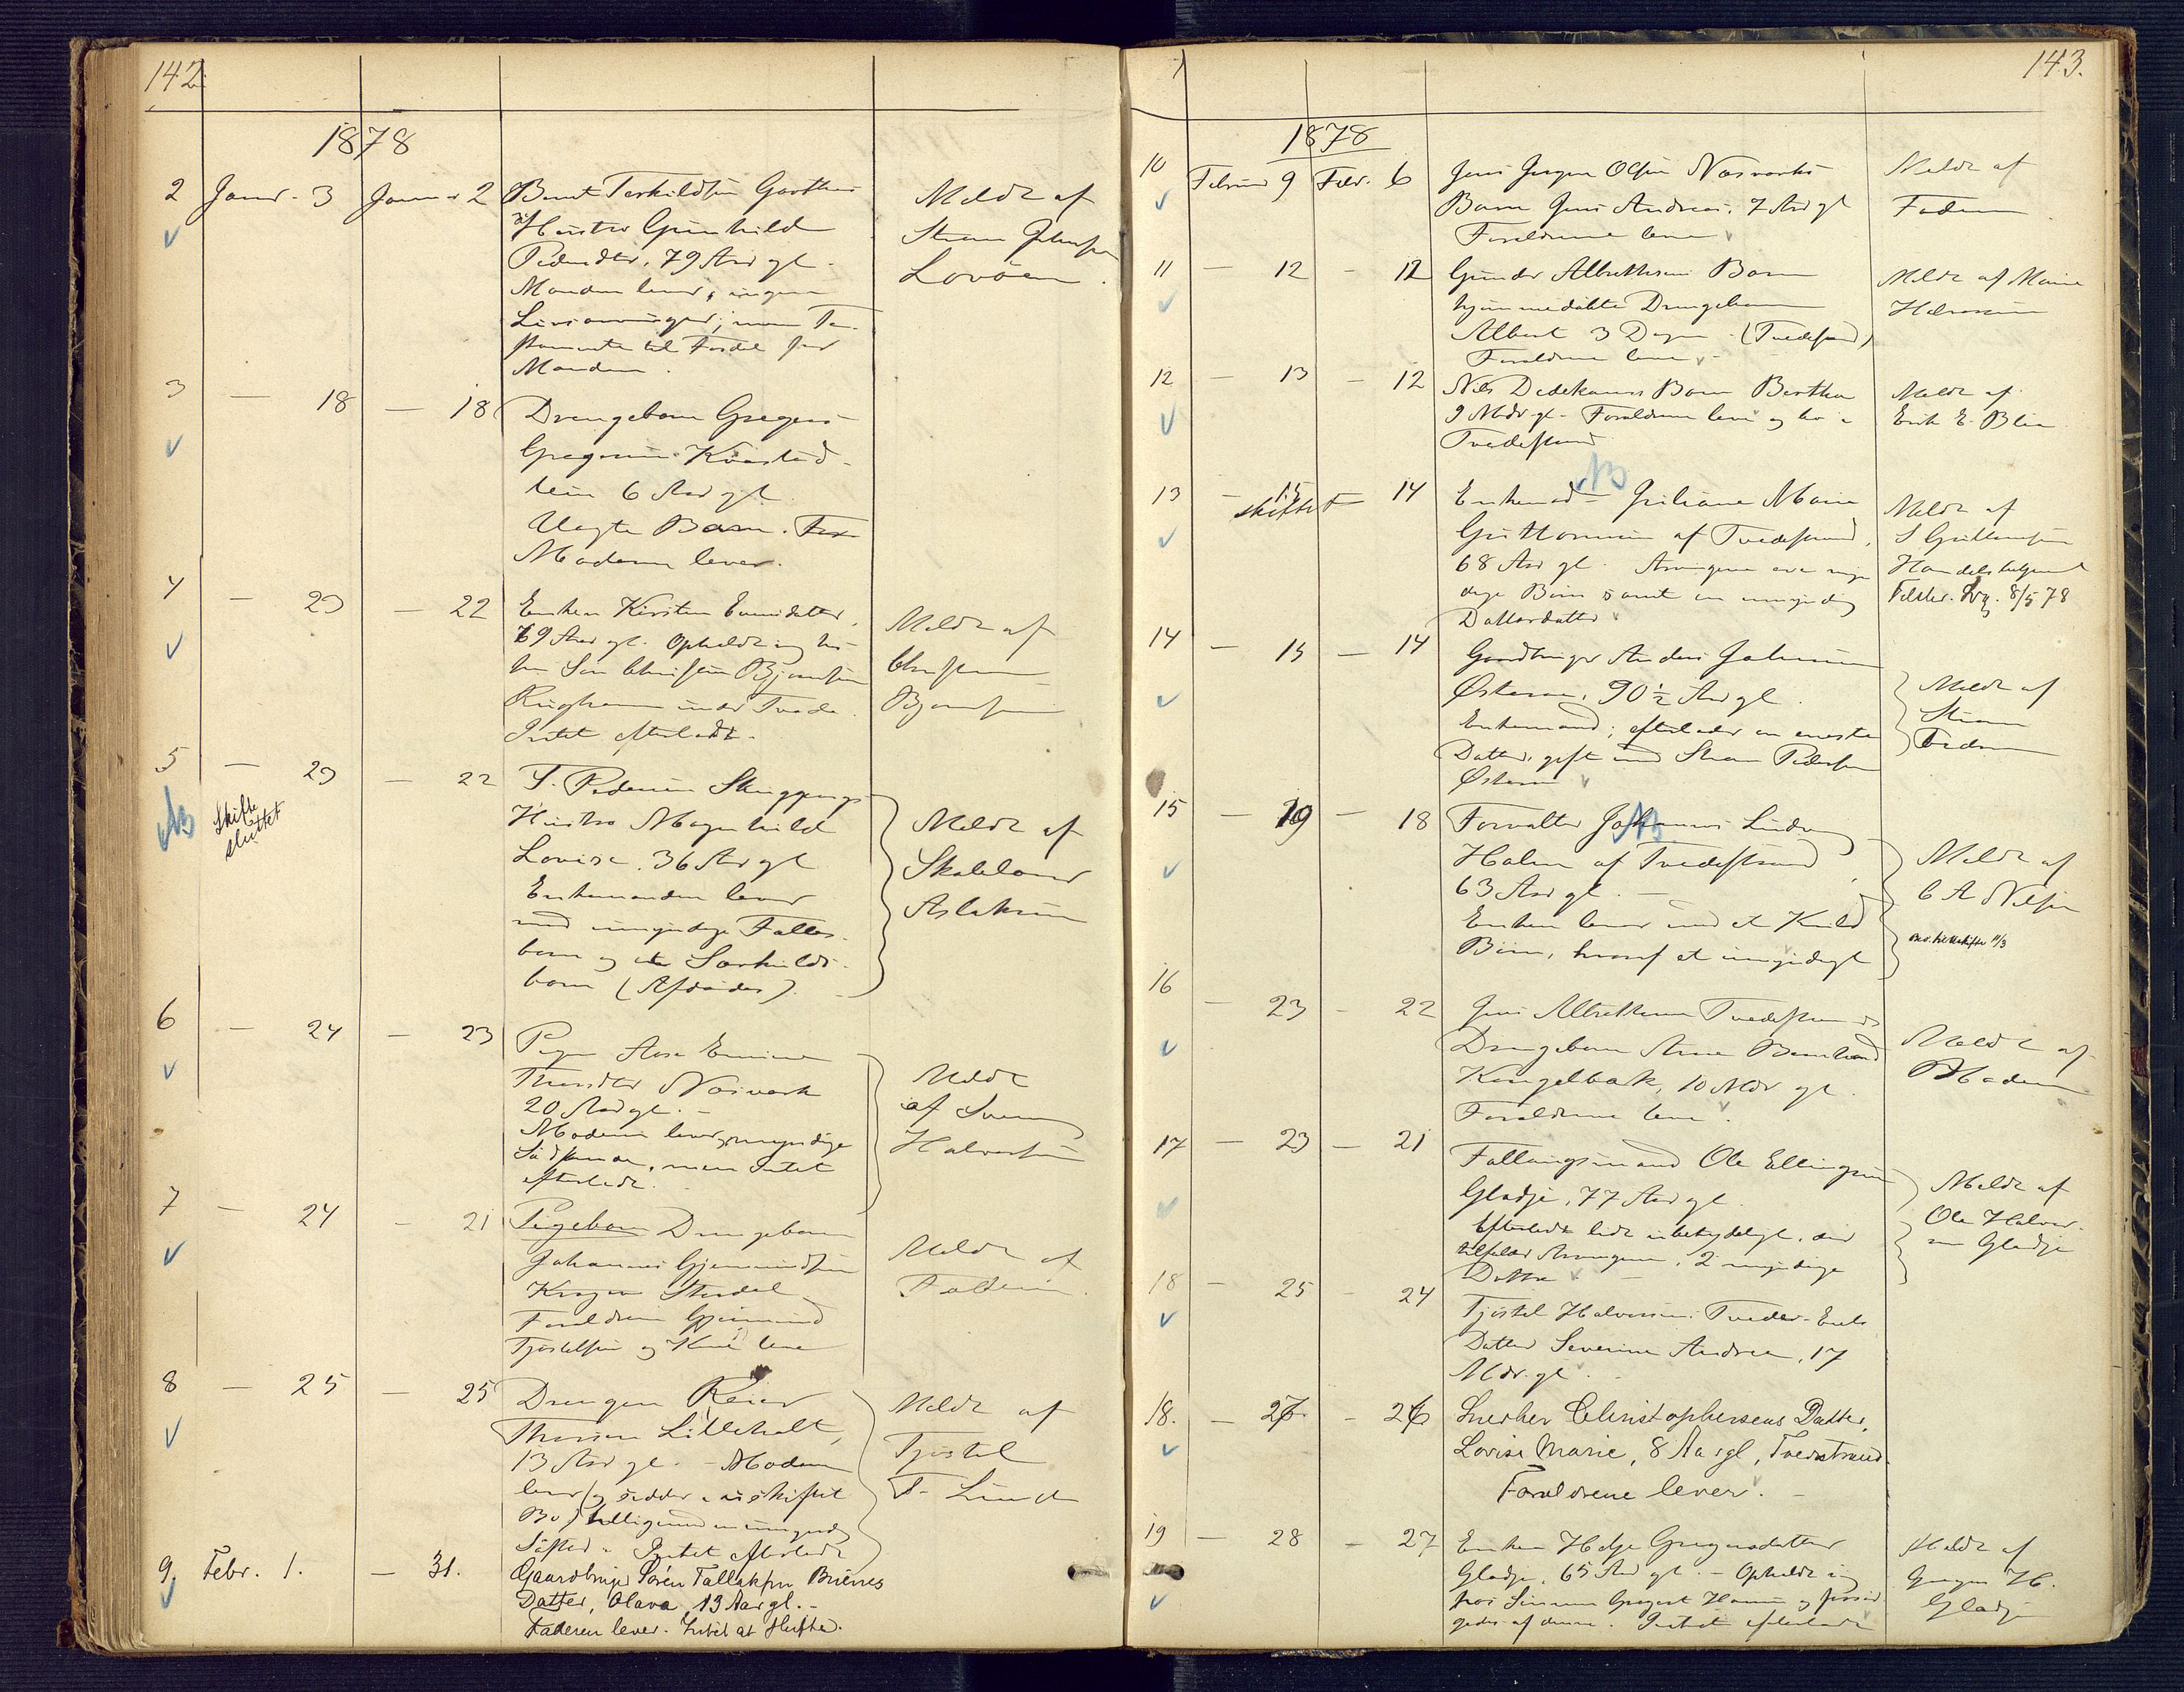 142.
1878
2 Janr. 3 Januar 2 Bernt Terkildsen Garthes
Hustro Gunhild
Pedersdtr, 79 Aar gl.
Manden lever, ingen
Livsarvinger; men Te-
stamente til Fordel for
Manden.
Meldt af
Steen Jensen
Lovöen
3 — 18 — 18 Drengebarn Gregers
Gregersen Kvastad-
lein 6 Aar gl.
Uægte Barn.
Moderen lever.
4 — 23 — 22 Enken Kirsten Evensdatter,
79 Aar gl. Opholdt sig hos
Søn Christen Bjørnsen
under Tvede.
Intet efterladt.
Meldt af
Christen
Bjørnsen
5 — 23 — 22 T. Pedersen Skuggevigs
Hustro Magnhild
Lovise, 36 Aar gl
Enkemanden lever
med umyndige Fælles-
børn og Særkulds-
barn (Afdødes).
Skifte
sluttet
NB
Meldt af
Skaleland
Aslaksen
6 — 24 — 23 Pigen Aase Emilie
Næsværk
20 Aar gl. —
Moderen lever, myndige
Sødskende, men Intet
efterladt.
Meldt
af Svend
Halvorsen
7 — 24 — 21 Pigebarn Drengebarn
Johannes Gjermundsen
Stordal
Forældrene Gjermund
Tjøstelsen og Kone leve
Meldt af
Faderen.
8 — 25 — 25 Drengen Reier
Thorsen Lilleholt,
13 Aar gl. — Moderen
lever (og sidder i uskiftet
Bo) tilligemed en umyndig
Søster. Intet efterladt
Meldt af
Tjøstel
T. Lund
9. Febr. 1. — 31. Gaardbruger Søren Tallaksen Briennes
Datter, Olava 13 Aar gl. —
Faderen lever. Intet at skifte.
143.
1878
10 Februar 9 Febr. 6 Jens Jørgen Olsen Næsværks
Barn Jens Andreas, 7 Aar gl
Forældrene leve
Meldt af
Faderen
11 — 12 — 12 Gunder Albrethsens Barn
hjemmedøbte Drengebarn
Albert 3 Dage (Tvedestrand)
Forældrene leve.
Meldt af Marie
12 — 13 — 12 Nils Dedekams Barn Berthe
9 Mdr gl. Forældrene leve og bo i
Tvedestrand
Meldt af
Erik E. Blie
13 — 15 14 Enkemad. Juliane Marie
Guttormsen af Tvedestrand,
68 Aar gl. Arvingene ere myn
dige Børn samt en umyndig
Datterdatter
skiftet
NB
Meldt af
S Guttormsen
Handelsbetjent
8/5 78
14 — 15 — 14 Gaardbruger Anders Johnsen
Østeraa, 90½ Aar gl.
Enkemand; efterlader en eneste
Datter, gift med Steen Pedersen
Østeraa
Meldt af
Steen
Pedersen
15 — 19 — 18 Forvalter Johannes Ludvig
Holm af Tvedestrand,
63 Aar gl. —
Enken lever med et Kuld
Børn, hvoraf et umyndigt
NB
Meldt af
C A Nilsen
11/3
16 — 23 — 22 Jens Albrethsen Tvedestrands
Drengebarn Arne Bernhard
Kongelbæk, 10 Mdr gl.
Forældrene leve.
Meldt af
Moderen
17 — 23 — 21 Fattigmand Ole Ellingsen
Gladje, 77 Aar gl.
Efterladt lidt ubetydeligt, der
tilfalder Arvingene, 2 myndige
Døttre
Meldt af
Ole Halvor-
sen Gladje
18 — 25 — 24 Tjøstel Halvorsen Tvede-Eids
Datter Severine Andrea, 17
Mdr. gl.
18. — 26 — 26 Snedker Christophersens Datter,
Lovise Marie, 8 Aar gl, Tvedestrand.
Forældrene lever. —
19 — 28 — 27 Enken Helje Gregersdatter
Gladje, 65 Aar gl. — Opholdt sig
hos Sønnen Gregert Hansen og forsør
gedes af denne. Intet efterladt
Meldt af
Gregers H.
Gladje